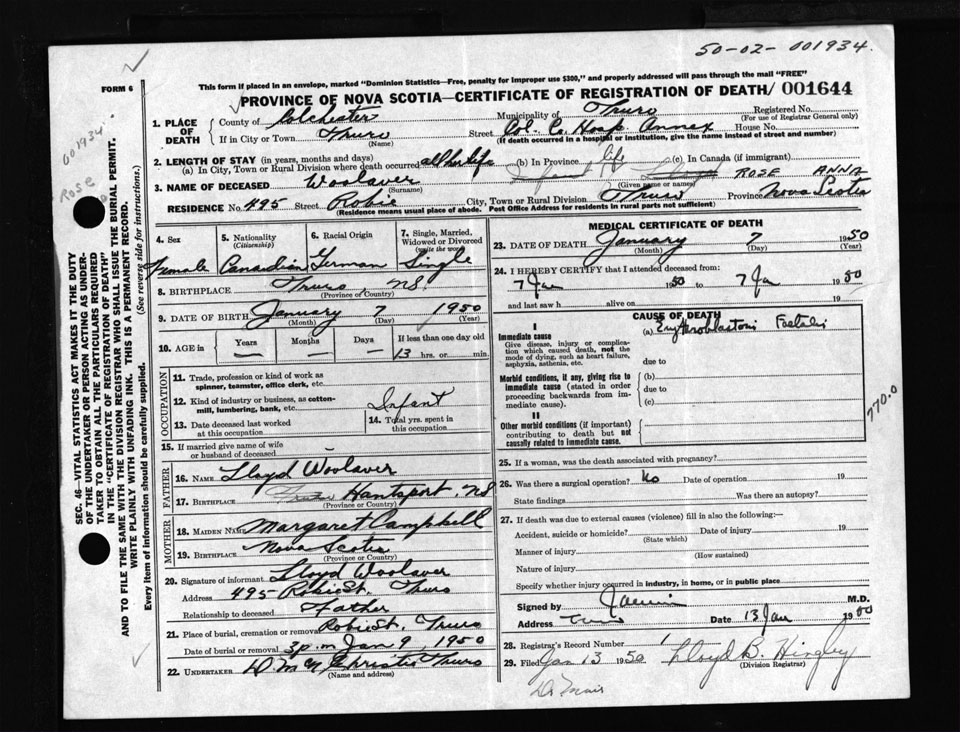 50-02-001934
This form if placed in an envelope, marked "Dominion Statistics—Free, penalty for improper use $300," and properly addressed will pass through the mail "FREE"
FORM 6
PROVINCE OF NOVA SCOTIA—CERTIFICATE OF REGISTRATION OF DEATH/ 001644
1. PLACE OF DEATH
County of Colchester Municipality of Truro Registered No.
(For use of Registrar General only)
If in City or Town Truro Street Col. Co. Hosp. Annex House No.
(Name) (If death occurred in a hospital or institution, give the name instead of street and number)
2. LENGTH OF STAY (in years, months and days)
(a) In City, Town or Rural Division where death occurred all her life (b) In Province life (c) In Canada (if immigrant)
3. NAME OF DECEASED Woolaver Infant Lloyd ROSE ANNA
(Surname) (Given name or names)
RESIDENCE No. 495 Street Robie City, Town or Rural Division Truro Province Nova Scotia
(Residence means usual place of abode. Post Office Address for residents in rural parts not sufficient)
4. Sex 5. Nationality (Citizenship) 6. Racial Origin 7. Single, Married, Widowed or Divorced (write the word)
Female Canadian German Single
8. BIRTHPLACE Truro, NS.
(Province or Country)
9. DATE OF BIRTH January 7 1950
(Month) (Day) (Year)
10. AGE in Years Months Days If less than one day old
— — 13 hrs. or min.
OCCUPATION
11. Trade, profession or kind of work as spinner, teamster, office clerk, etc.
12. Kind of industry or business, as cotton-mill, lumbering, bank, etc. Infant
13. Date deceased last worked at this occupation
14. Total yrs. spent in this occupation
15. If married give name of wife or husband of deceased
FATHER
16. NAME Lloyd Woolaver
17. BIRTHPLACE Hantsport, NS
(Province or Country)
MOTHER
18. MAIDEN NAME Margaret Campbell
19. BIRTHPLACE Nova Scotia
(Province or Country)
20. Signature of informant Lloyd Woolaver
Address 495 Robie St. Truro
Relationship to deceased Father
21. Place of burial, cremation or removal Robie St. Truro
Date of burial or removal 3 p.m. Jan 9, 1950
22. UNDERTAKER Christie Truro
(Name and address)
MEDICAL CERTIFICATE OF DEATH
23. DATE OF DEATH January 7 1950
(Month) (Day) (Year)
24. I HEREBY CERTIFY that I attended deceased from:
7 Jan 1950 to 7 Jan 1950
and last saw h alive on 19
CAUSE OF DEATH
I
Immediate cause (a) Erythroblastosis Foetalis
Give disease, injury or complication which caused death, not the mode of dying, such as heart failure, asphyxia, asthenia, etc.
due to
Morbid conditions, if any, giving rise to immediate cause (stated in order proceeding backwards from immediate cause).
(b)
due to
(c)
II
Other morbid conditions (if important) contributing to death but not causally related to immediate cause.
770.0
25. If a woman, was the death associated with pregnancy?
26. Was there a surgical operation? No Date of operation 19
State findings Was there an autopsy?
27. If death was due to external causes (violence) fill in also the following:—
Accident, suicide or homicide? Date of injury 19
(State which)
Manner of injury
(How sustained)
Nature of injury
Specify whether injury occurred in industry, in home, or in public place
Signed by M.D.
Address Truro Date 13 Jan 1950
28. Registrar's Record Number 1
29. Filed Jan 13 1950 Lloyd B. Hingley
(Division Registrar)
SEC. 46—VITAL STATISTICS ACT MAKES IT THE DUTY
OF THE UNDERTAKER OR PERSON ACTING AS UNDER-
TAKER TO OBTAIN ALL THE PARTICULARS REQUIRED
IN THE "CERTIFICATE OF REGISTRATION OF DEATH"
AND TO FILE THE SAME WITH THE DIVISION REGISTRAR WHO SHALL ISSUE THE BURIAL PERMIT.
WRITE PLAINLY WITH UNFADING INK. THIS IS A PERMANENT RECORD.
Every item of information should be carefully supplied. (See reverse side for instructions.)
001934
Rose